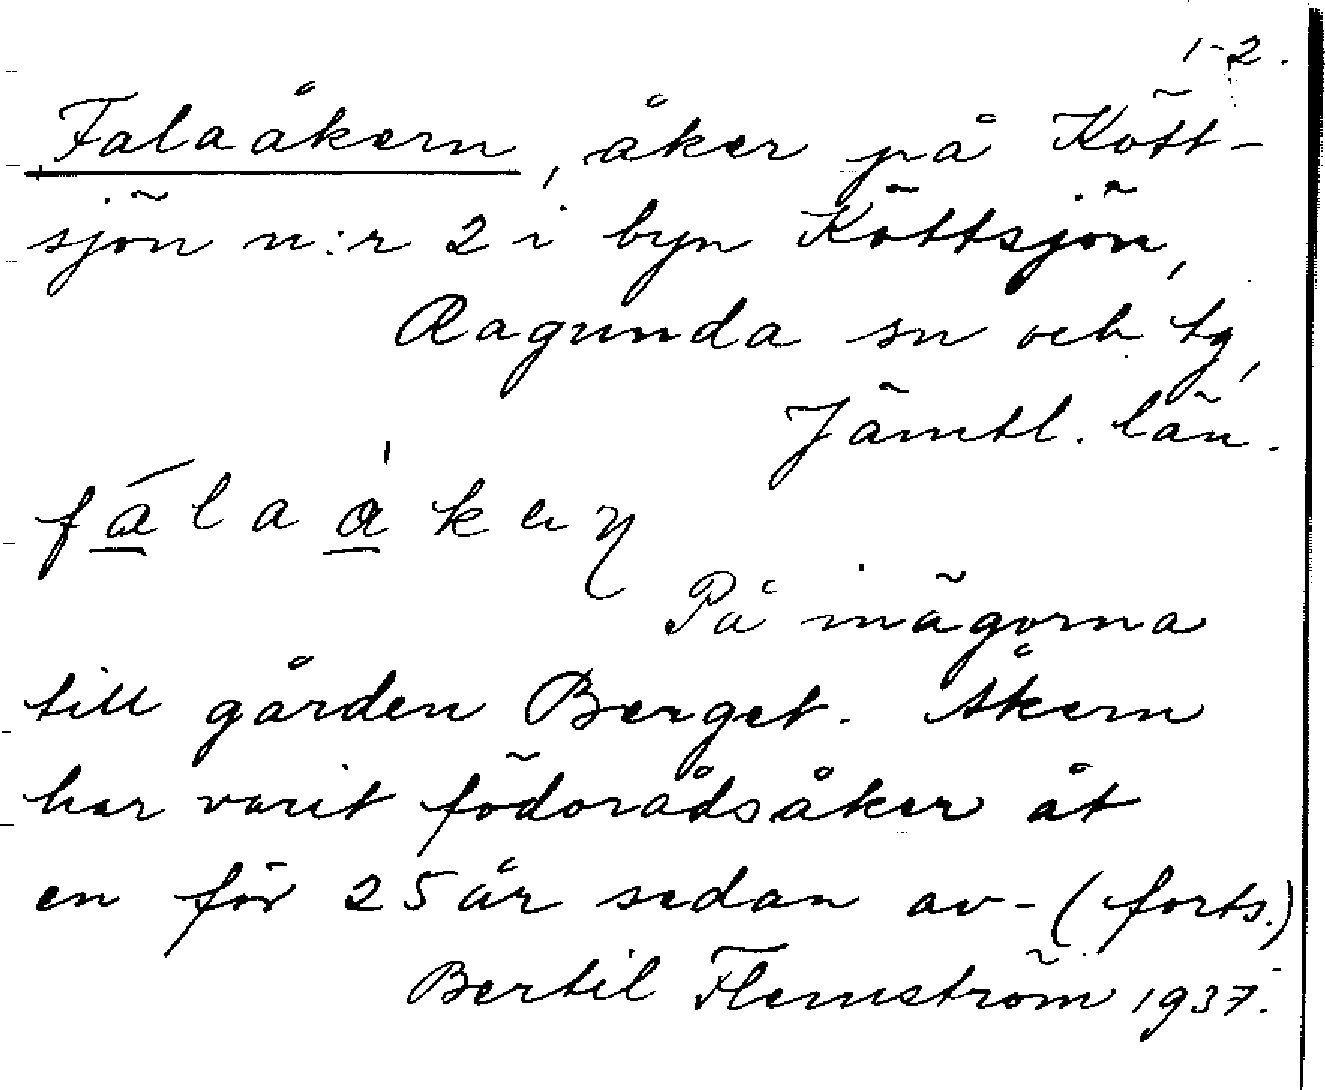 1-2.
Falaåkern, åker på Kött-
sjön n:r 2 i byn Köttsjön,
Ragunda sn och tg,
Jämtl. län.
På inägorna
till gården Berget. Åkern
har varit födorådsåker åt
en för 25 år sedan av- (forts.)
Bertil Flemström 1937.